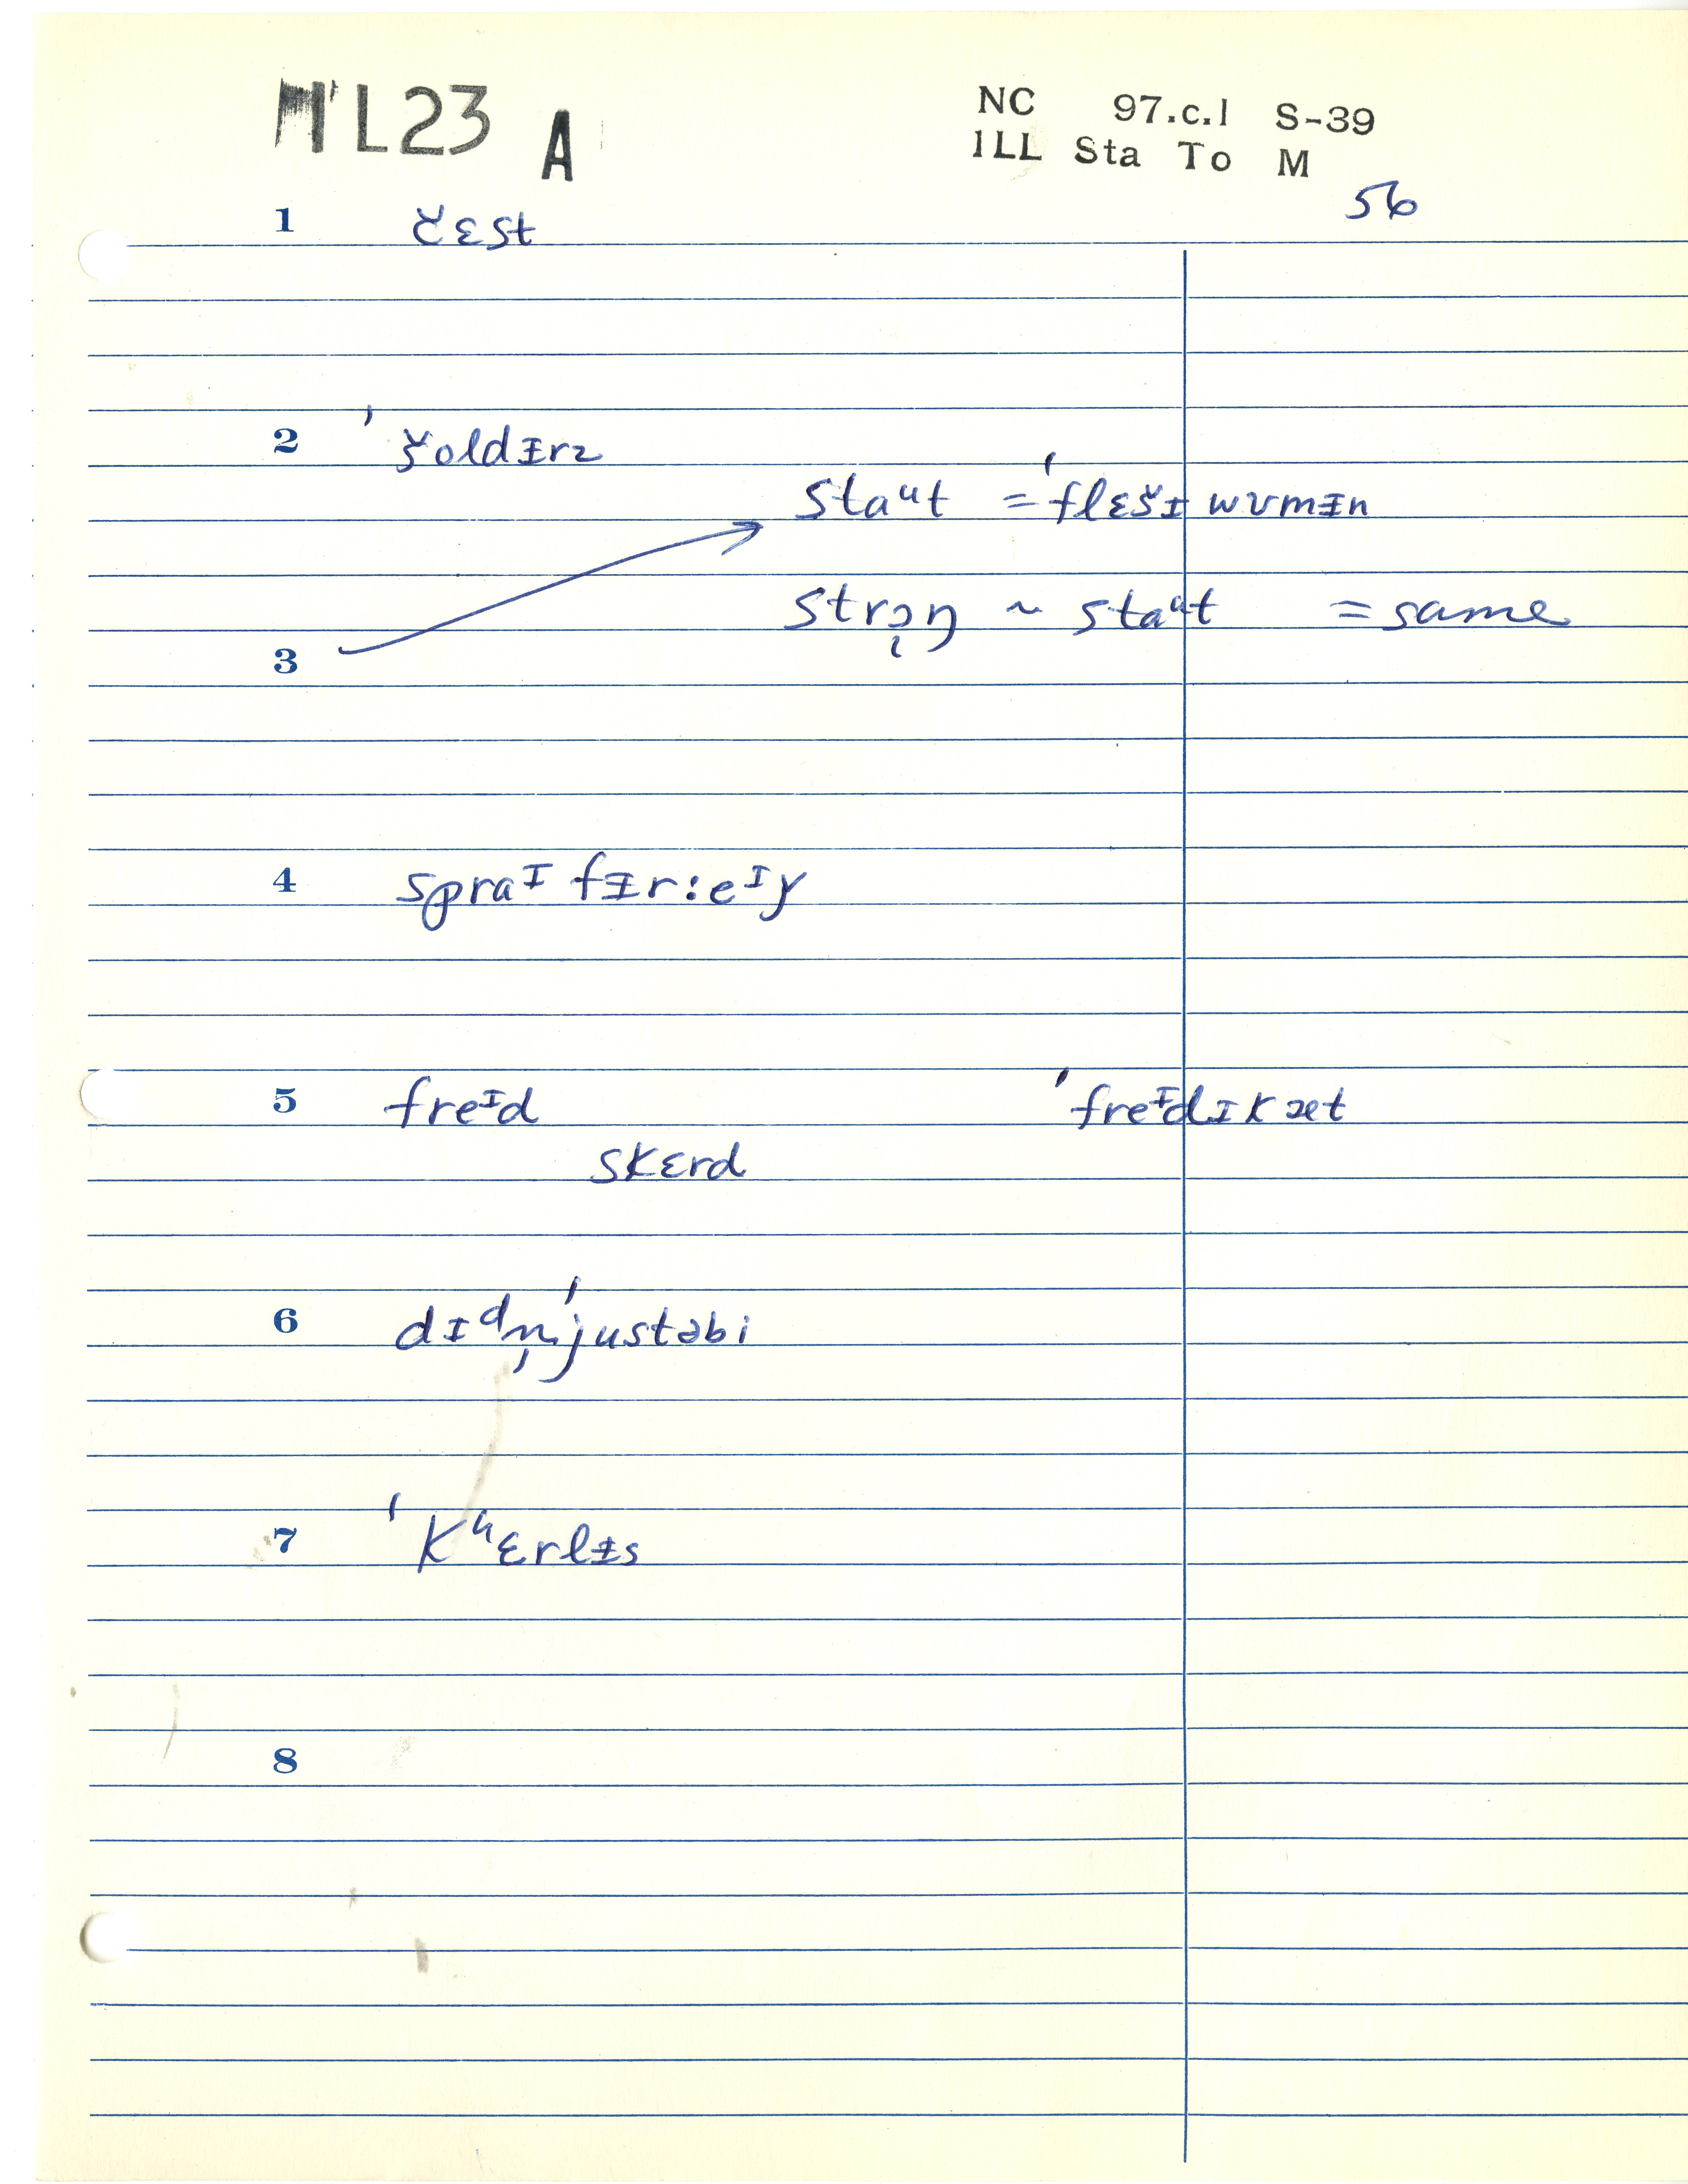 M L23 A
NC 97.c.1 S-39
ILL Sta To M
56
1 č̌ɛst
2 ˈšoldɨrz
staᵘt = ˈflɛšɪ wʊmɨn
strɔ̨ŋ ~ staᵘt = same
3
4 spraᶦ fɨr:eᶦɣ
5 freᶦd ˈfreᶦdɪkæt
skɛrd
6 dɪᵈn̩ˈjustəbi
7 ˈkʰɛrlɨs
8